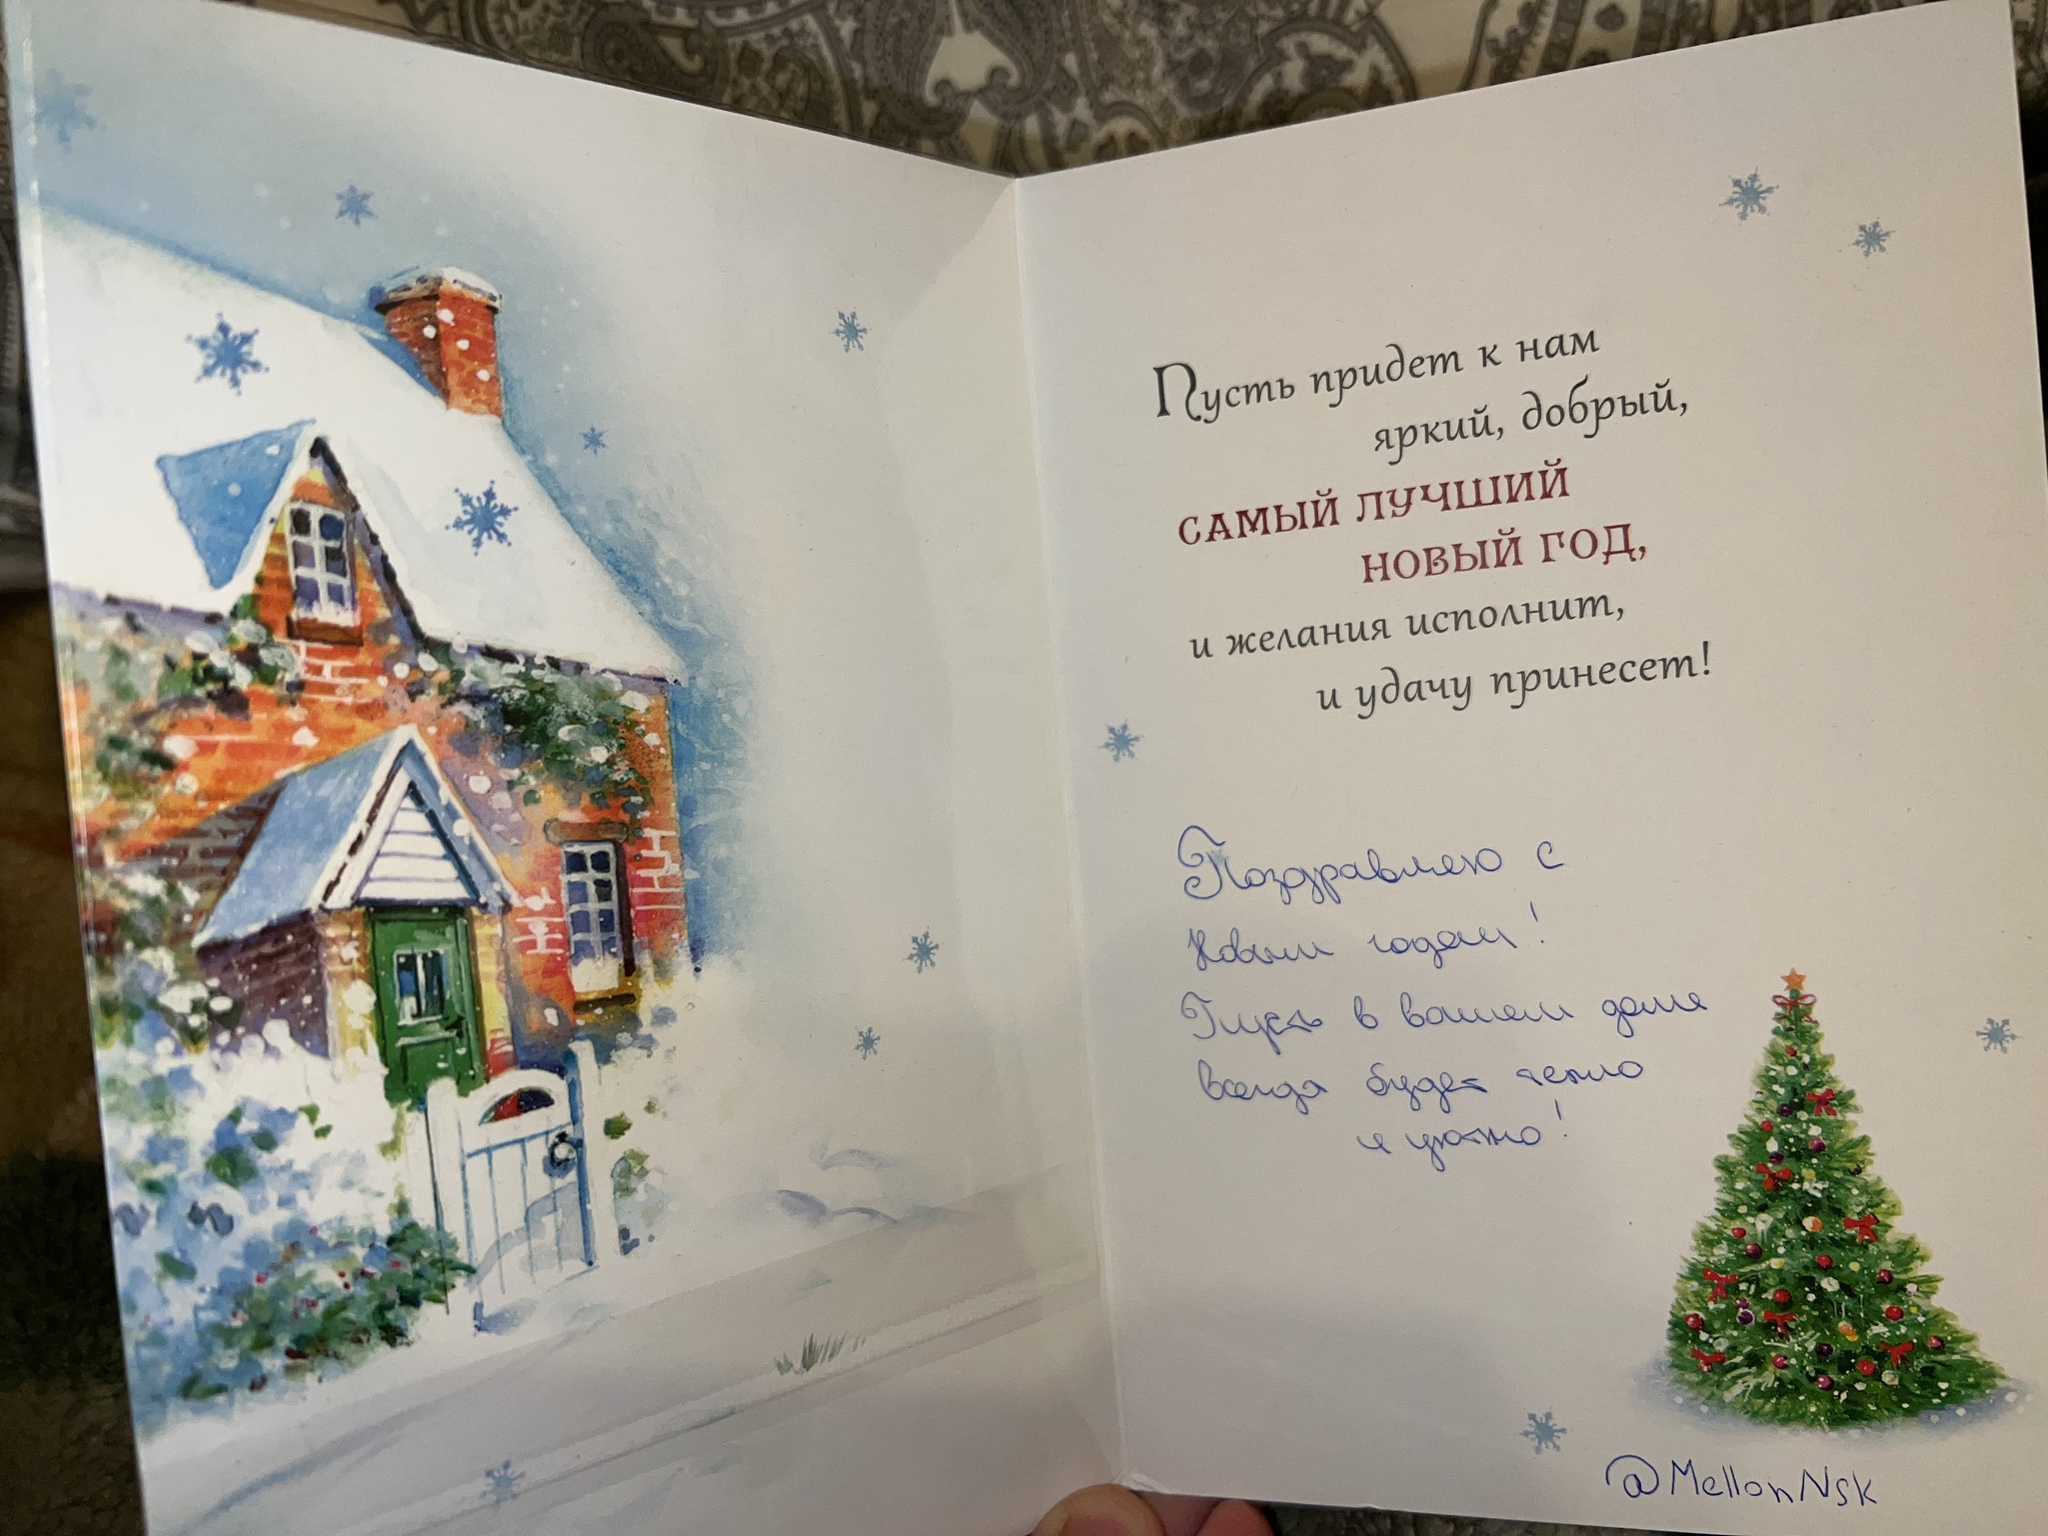 Пусть придет к нам
яркий, добрый,
САМЫЙ ЛУЧШИЙ
НОВЫЙ ГОД,
и желания исполнит,
и удачу принесет!
Поздравляю с
Новым годом!
Пусть в вашем доме
всегда будет тепло
и уютно!
@MellonNsk